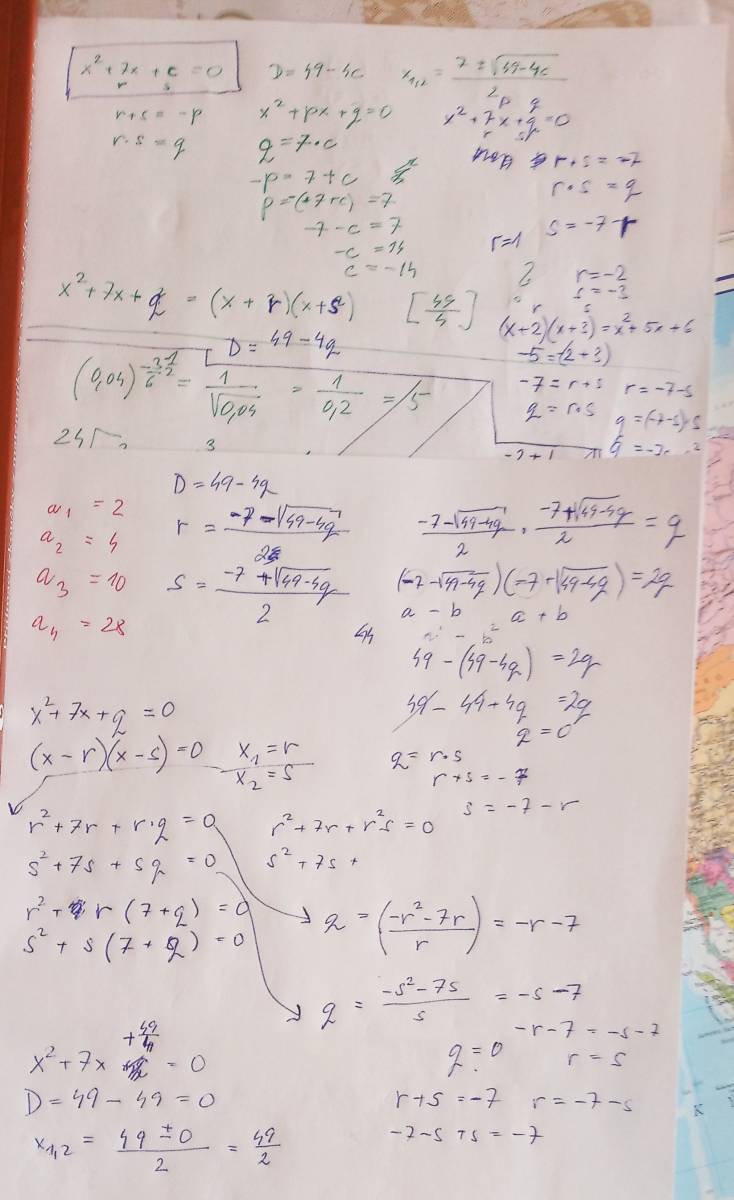 x² + 7x + c = 0
r s
D = 49 - 4c
x₁,₂ = (7 ± √(49-4c))/2
r + s = -p
r · s = q
x² + px + q = 0
q = 7 · c
-p = 7 + c
p = -(+7+c) = 7
-7 - c = 7
-c = 14
c = -14
p q
x² + 7x + q = 0
r + s = -7
r · s = q
s = -7 - r
r = 1
r = -2
s = -3
x² + 7x + q = (x + r)(x + s)
[49/4]
D = 49 - 4q
r s
(x+2)(x+3) = x² + 5x + 6
-5 = -(2+3)
-7 = r + s
q = r · s
r = -7 - s
q = (-7-s) · s
(0,04)
= 1/√0,04 = 1/0,2 = 5
a₁ = 2
a₂ = 4
a₃ = 10
a₄ = 28
D = 49 - 4q
r = (-7 - √(49-4q))/2
s = (-7 + √(49-4q))/2
(-7-√(49-4q))/2 · (-7+√(49-4q))/2 = q
(-7 - √(49-4q))(-7 + √(49-4q)) = 2q
a - b a + b
44
49 - (49-4q) = 2q
49 - 49 + 4q = 2q
q = 0
x² + 7x + q = 0
(x - r)(x - s) = 0
x₁ = r
x₂ = s
q = r · s
r + s = -7
s = -7 - r
r² + 7r + r·q = 0
s² + 7s + sq = 0
r² + 7r + r²s = 0
s² + 7s +
r² + r(7+q) = 0
s² + s(7+q) = 0
q = ((-r² - 7r)/r) = -r - 7
q = (-s² - 7s)/s = -s - 7
-r - 7 = -s - 7
q = 0
r = s
x² + 7x + 49/4 = 0
D = 49 - 49 = 0
x₁,₂ = (49 ± 0)/2 = 49/2
r + s = -7
r = -7 - s
-7 - s + s = -7